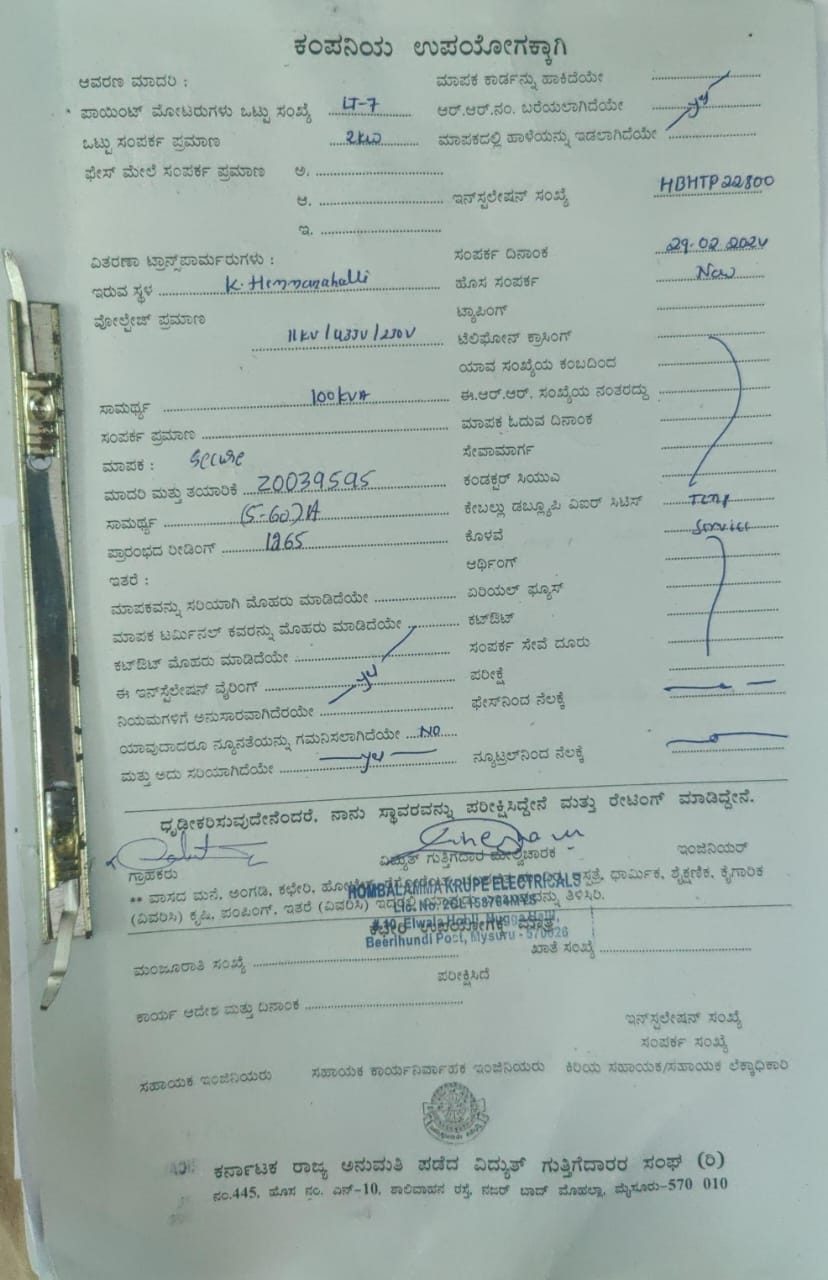 ಕಂಪನಿಯ ಉಪಯೋಗಕ್ಕಾಗಿ
ಆವರಣ ಮಾದರಿ : ಮಾಪಕ ಕಾರ್ಡನ್ನು ಹಾಕಿದೆಯೇ
ಪಾಯಿಂಟ್ ಮೋಟರುಗಳು ಒಟ್ಟು ಸಂಖ್ಯೆ LT-7 ಆರ್.ಆರ್.ನಂ. ಬರೆಯಲಾಗಿದೆಯೇ yes
ಒಟ್ಟು ಸಂಪರ್ಕ ಪ್ರಮಾಣ 2kw ಮಾಪಕದಲ್ಲಿ ಹಾಳೆಯನ್ನು ಇಡಲಾಗಿದೆಯೇ
ಫೇಸ್ ಮೇಲೆ ಸಂಪರ್ಕ ಪ್ರಮಾಣ ಅ.
ಆ. ಇನ್‌ಸ್ಟಲೇಷನ್ ಸಂಖ್ಯೆ HBHTP22800
ಇ.
ವಿತರಣಾ ಟ್ರಾನ್ಸ್‌ಪಾರ್ಮರುಗಳು : ಸಂಪರ್ಕ ದಿನಾಂಕ 29.02.2024
ಇರುವ ಸ್ಥಳ K. Hemmanahalli ಹೊಸ ಸಂಪರ್ಕ New
ವೋಲ್ಟೇಜ್ ಪ್ರಮಾಣ ಟ್ಯಾಪಿಂಗ್
11kV/433V/230V ಟೆಲಿಫೋನ್ ಕ್ರಾಸಿಂಗ್
ಯಾವ ಸಂಖ್ಯೆಯ ಕಂಬದಿಂದ
ಸಾಮರ್ಥ್ಯ 100kVA ಈ.ಆರ್.ಆರ್. ಸಂಖ್ಯೆಯ ನಂತರದ್ದು
ಸಂಪರ್ಕ ಪ್ರಮಾಣ ಮಾಪಕ ಓದುವ ದಿನಾಂಕ
ಮಾಪಕ : Secure ಸೇವಾಮಾರ್ಗ
ಮಾದರಿ ಮತ್ತು ತಯಾರಿಕೆ 20039595 ಕಂಡಕ್ಟರ್ ಸಿಯುಎ
ಸಾಮರ್ಥ್ಯ (5-60)A ಕೇಬಲ್ಲು ಡಬ್ಲ್ಯೂಪಿ ವಿಐಆರ್ ಸಿಟಿಸ್ Temp
ಪ್ರಾರಂಭದ ರೀಡಿಂಗ್ 1265 ಕೊಳವೆ Service
ಇತರೆ : ಆರ್ಥಿಂಗ್
ಮಾಪಕವನ್ನು ಸರಿಯಾಗಿ ಮೊಹರು ಮಾಡಿದೆಯೇ ಏರಿಯಲ್ ಫ್ಯೂಸ್
ಮಾಪಕ ಟರ್ಮಿನಲ್ ಕವರನ್ನು ಮೊಹರು ಮಾಡಿದೆಯೇ ಕಟ್‌ಔಟ್
ಕಟ್‌ಔಟ್ ಮೊಹರು ಮಾಡಿದೆಯೇ ಸಂಪರ್ಕ ಸೇವೆ ದೂರು
ಈ ಇನ್‌ಸ್ಟಲೇಷನ್ ವೈರಿಂಗ್ yes ಪರೀಕ್ಷೆ
ನಿಯಮಗಳಿಗೆ ಅನುಸಾರವಾಗಿದೆರಯೇ ಫೇಸ್‌ನಿಂದ ನೆಲಕ್ಕೆ
ಯಾವುದಾದರೂ ನ್ಯೂನತೆಯನ್ನು ಗಮನಿಸಲಾಗಿದೆಯೇ NO
ಮತ್ತು ಅದು ಸರಿಯಾಗಿದೆಯೇ yes ನ್ಯೂಟ್ರಲ್‌ನಿಂದ ನೆಲಕ್ಕೆ
ಧೃಡೀಕರಿಸುವುದೇನೆಂದರೆ, ನಾನು ಸ್ಥಾವರವನ್ನು ಪರೀಕ್ಷಿಸಿದ್ದೇನೆ ಮತ್ತು ರೇಟಿಂಗ್ ಮಾಡಿದ್ದೇನೆ.
ಗ್ರಾಹಕರು ವಿದ್ಯುತ್ ಗುತ್ತಿಗೆದಾರ ಮೇಲ್ವಿಚಾರಕ ಇಂಜಿನಿಯರ್
** ವಾಸದ ಮನೆ, ಅಂಗಡಿ, ಕಛೇರಿ, ಧಾರ್ಮಿಕ, ಶೈಕ್ಷಣಿಕ, ಕೈಗಾರಿಕ
HOMBALAMMA KRUPE ELECTRICALS
(ವಿವರಿಸಿ) ಕೃಷಿ, ಪಂಪಿಂಗ್, ಇತರೆ (ವಿವರಿಸಿ) ತಿಳಿಸಿರಿ.
Beerihundi Post, Mysuru - 570026
ಮಂಜೂರಾತಿ ಸಂಖ್ಯೆ ಖಾತೆ ಸಂಖ್ಯೆ
ಪರೀಕ್ಷಿಸಿದೆ
ಕಾರ್ಯ ಆದೇಶ ಮತ್ತು ದಿನಾಂಕ
ಇನ್‌ಸ್ಟಲೇಷನ್ ಸಂಖ್ಯೆ
ಸಂಪರ್ಕ ಸಂಖ್ಯೆ
ಸಹಾಯಕ ಇಂಜಿನಿಯರು ಸಹಾಯಕ ಕಾರ್ಯನಿರ್ವಾಹಕ ಇಂಜಿನಿಯರು ಕಿರಿಯ ಸಹಾಯಕ/ಸಹಾಯಕ ಲೆಕ್ಕಾಧಿಕಾರಿ
ಕರ್ನಾಟಕ ರಾಜ್ಯ ಅನುಮತಿ ಪಡೆದ ವಿದ್ಯುತ್ ಗುತ್ತಿಗೆದಾರರ ಸಂಘ (ರಿ)
ನಂ.445, ಹೊಸ ನಂ. ಎನ್-10, ಶಾಲಿವಾಹನ ರಸ್ತೆ, ನಜರ್ ಬಾದ್ ಮೊಹಲ್ಲಾ, ಮೈಸೂರು-570 010